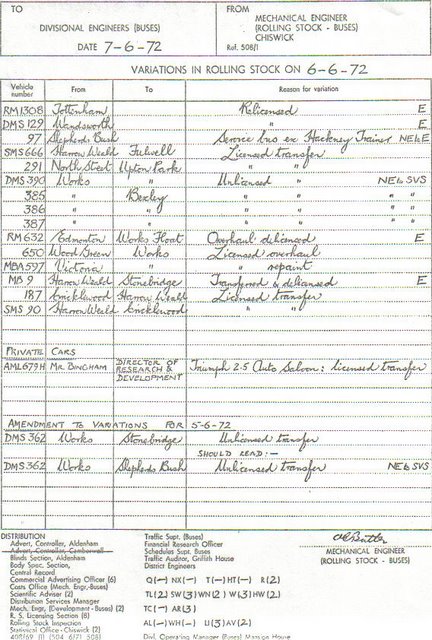 TO
DIVISIONAL ENGINEERS (BUSES)
DATE 7-6-72
FROM
MECHANICAL ENGINEER
(ROLLING STOCK - BUSES)
CHISWICK
Ref. 508/1
VARIATIONS IN ROLLING STOCK ON 6-6-72
Vehicle number From To Reason for variation
RM1308 Tottenham Relicensed E
DMS 129 Wandsworth " E
97 Shepherds Bush Service bus ex Hackney Trainer NE6E
SMS 666 Harrow Weald Fulwell Licensed transfer
291 North Street Upton Park " "
DMS 390 Works " Unlicensed " NE6 SVS
385 " Bexley " " " "
386 " " " " " "
387 " " " " " "
RM 632 Edmonton Works Float Overhaul delicensed E
650 Wood Green Works Licensed overhaul
MBA 597 Victoria " " repaint
MB 9 Harrow Weald Stonebridge Transferred & delicensed E
187 Cricklewood Harrow Weald Licensed transfer
SMS 90 Harrow Weald Cricklewood " "
PRIVATE CARS
AML 679H MR. BINGHAM DIRECTOR OF RESEARCH & DEVELOPMENT Triumph 2.5 Auto Saloon: licensed transfer
AMENDMENT TO VARIATIONS FOR 5-6-72
DMS 362 Works Stonebridge Unlicensed transfer
SHOULD READ:-
DMS 362 Works Shepherds Bush Unlicensed transfer NE6 SVS
DISTRIBUTION
Advert. Controller, Aldenham
Advert. Controller, Camberwell
Blinds Section, Aldenham
Body Spec. Section,
Central Record
Commercial Advertising Officer (6)
Costs Office (Mech. Engr.-Buses)
Scientific Adviser (2)
Distribution Services Manager
Mech. Engr. (Development - Buses) (2)
R. S. Licensing Section (8)
Rolling Stock Inspection
Statistical Office - Chiswick (2)
408/69 (1) (504 6/71 508)
Traffic Supt. (Buses)
Financial Research Officer
Schedules Supt. Buses
Traffic Auditor, Griffith House
District Engineers
Q(-) NX(-) T(-) HT(-) R(2)
TL(2) SW(3) WN(2) W(3) HW(2)
TC(-) AR(3)
AL(-) WH(-) U(3) AV(2)
Divl. Operating Manager (Buses) Mansion House
MECHANICAL ENGINEER
(ROLLING STOCK - BUSES)